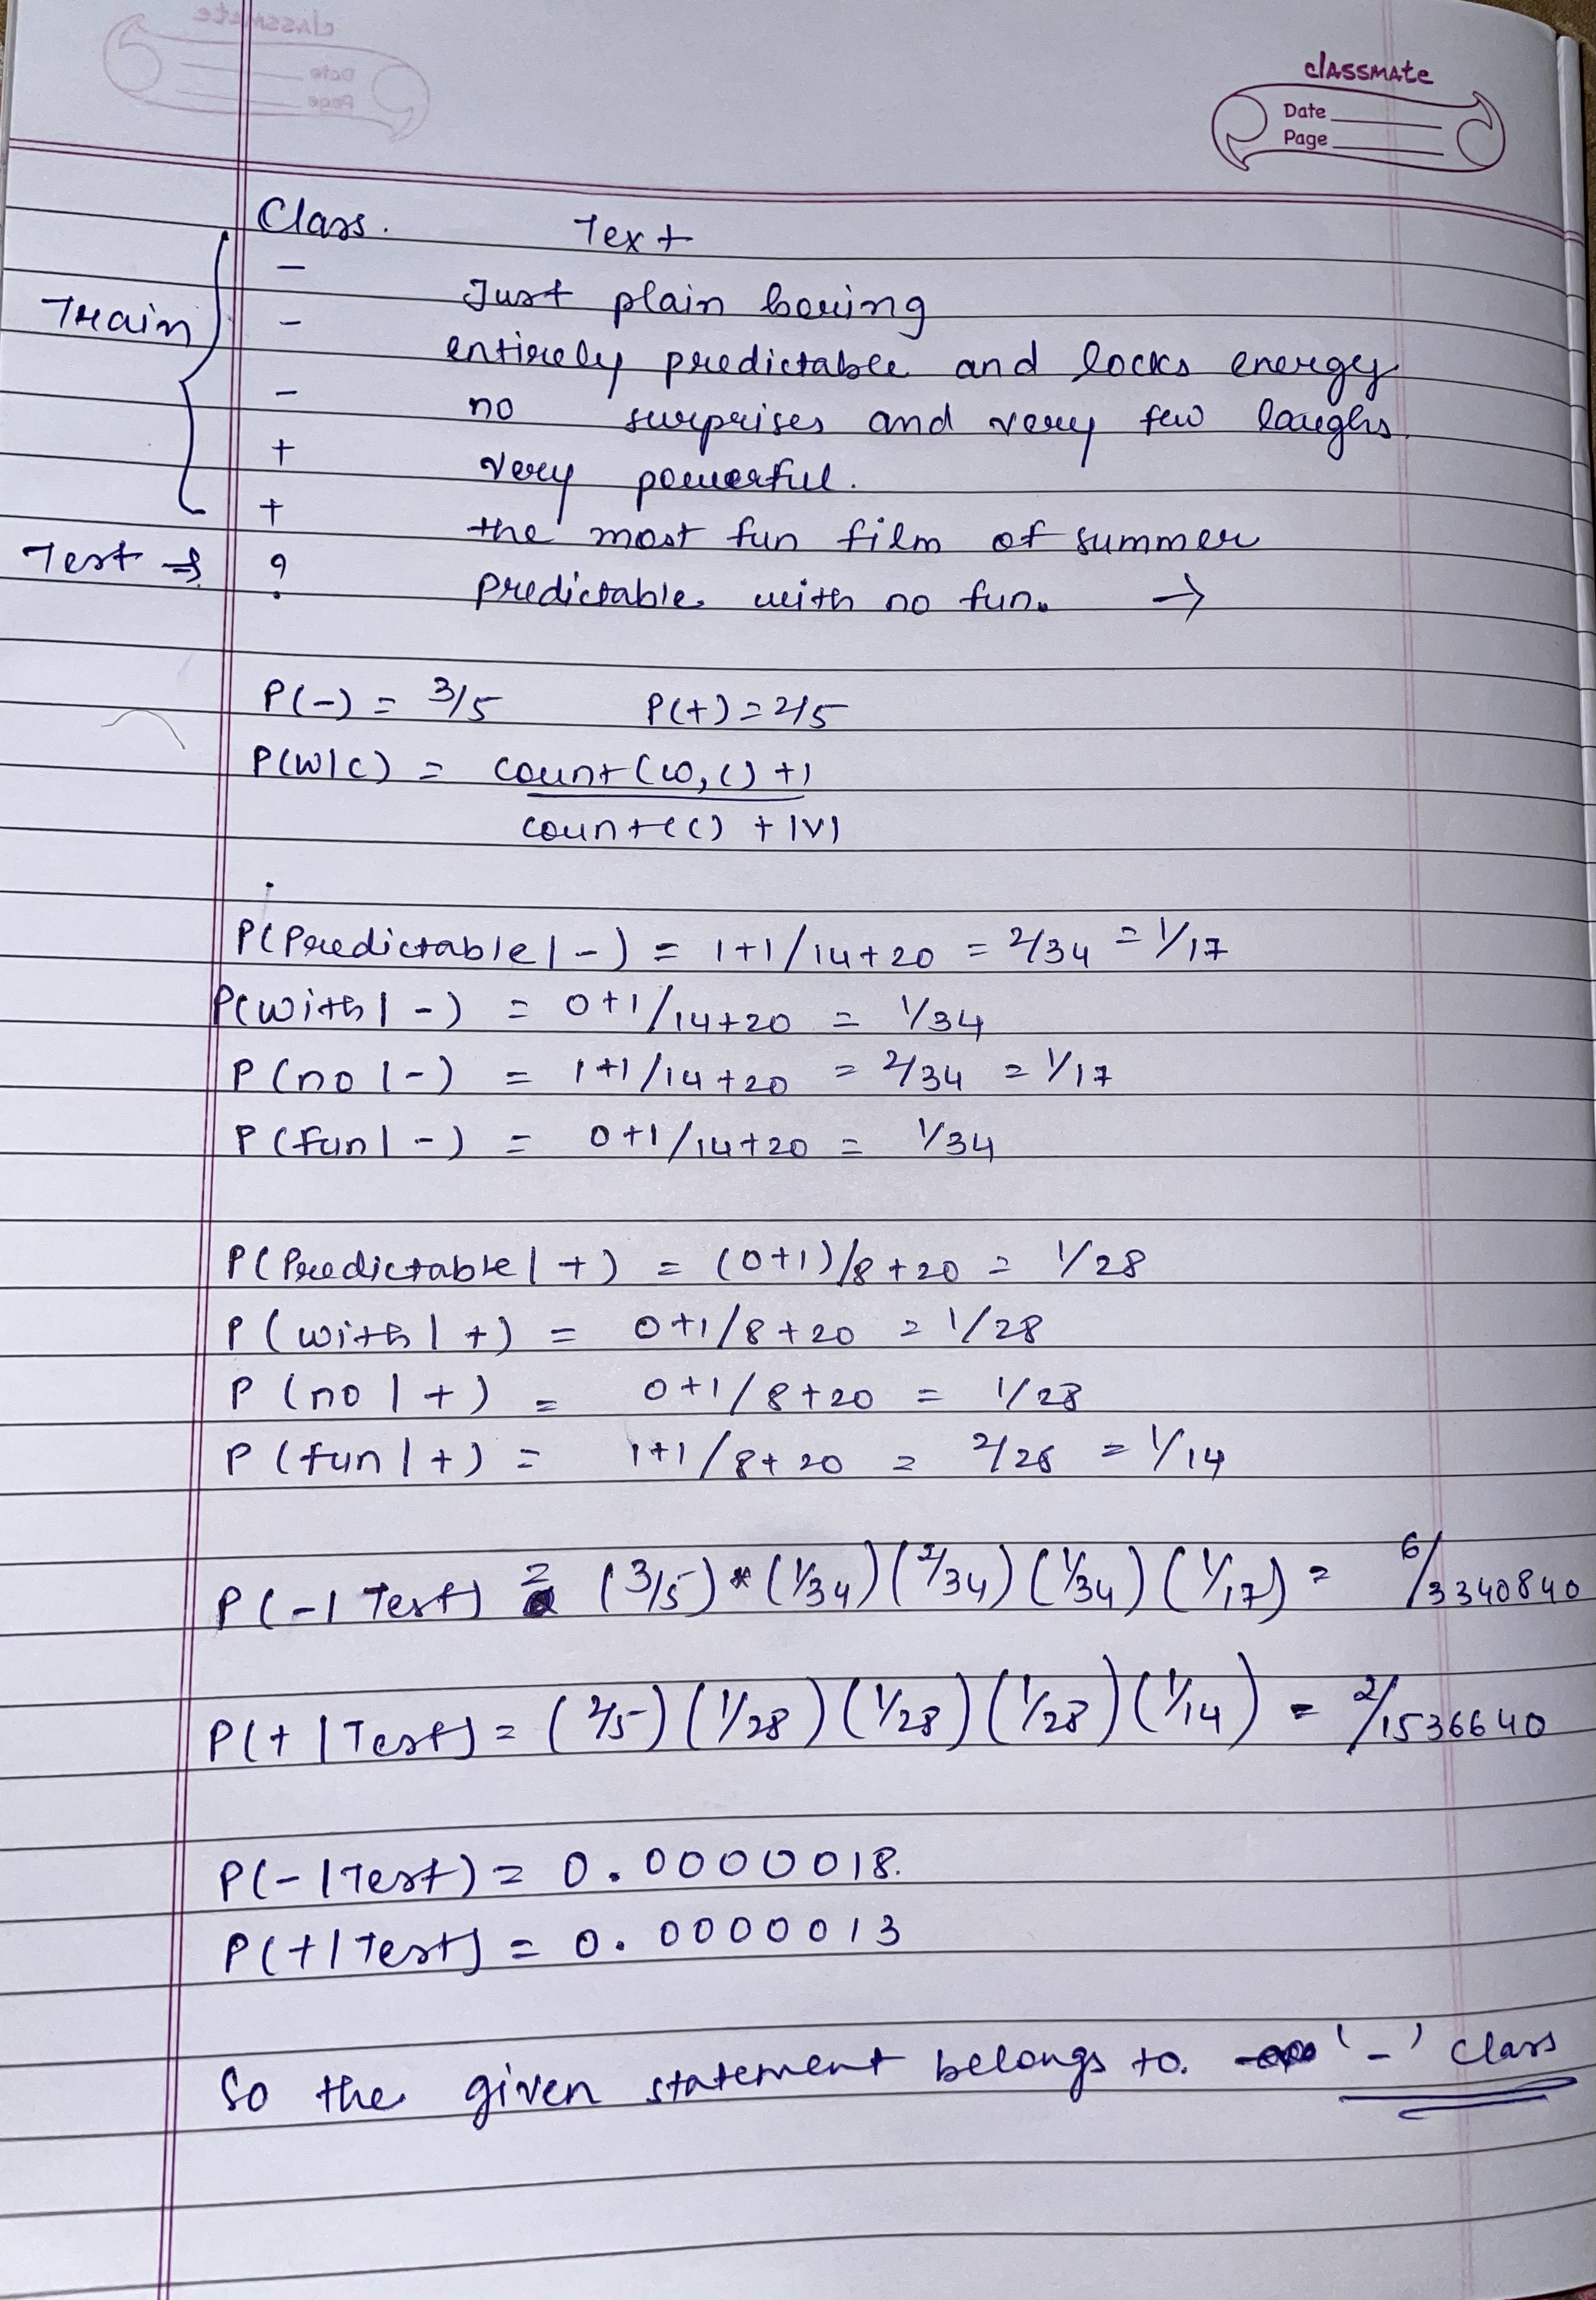 classmate
Date
Page
Class. Text
Train
- Just plain boring
- entirely predictable and locks energy
- no surprises and very few laughs.
+ very powerful.
+ the most fun film of summer
Test ⇒ ? predictable with no fun. →
P(-) = 3/5 P(+) = 2/5
P(W|C) = count(w,c)+1
count(c) + |V|
P(Predictable|-) = 1+1/14+20 = 2/34 = 1/17
P(with|-) = 0+1/14+20 = 1/34
P(no|-) = 1+1/14+20 = 2/34 = 1/17
P(fun|-) = 0+1/14+20 = 1/34
P(Predictable|+) = (0+1)/8+20 = 1/28
P(with|+) = 0+1/8+20 = 1/28
P(no|+) = 0+1/8+20 = 1/28
P(fun|+) = 1+1/8+20 = 2/28 = 1/14
P(-|Test) = (3/5)*(1/34)(2/34)(1/34)(1/17) = 6/3340840
P(+|Test) = (2/5)(1/28)(1/28)(1/28)(1/14) = 2/1536640
P(-|Test) = 0.0000018.
P(+|Test) = 0.0000013
So the given statement belongs to. '-' class